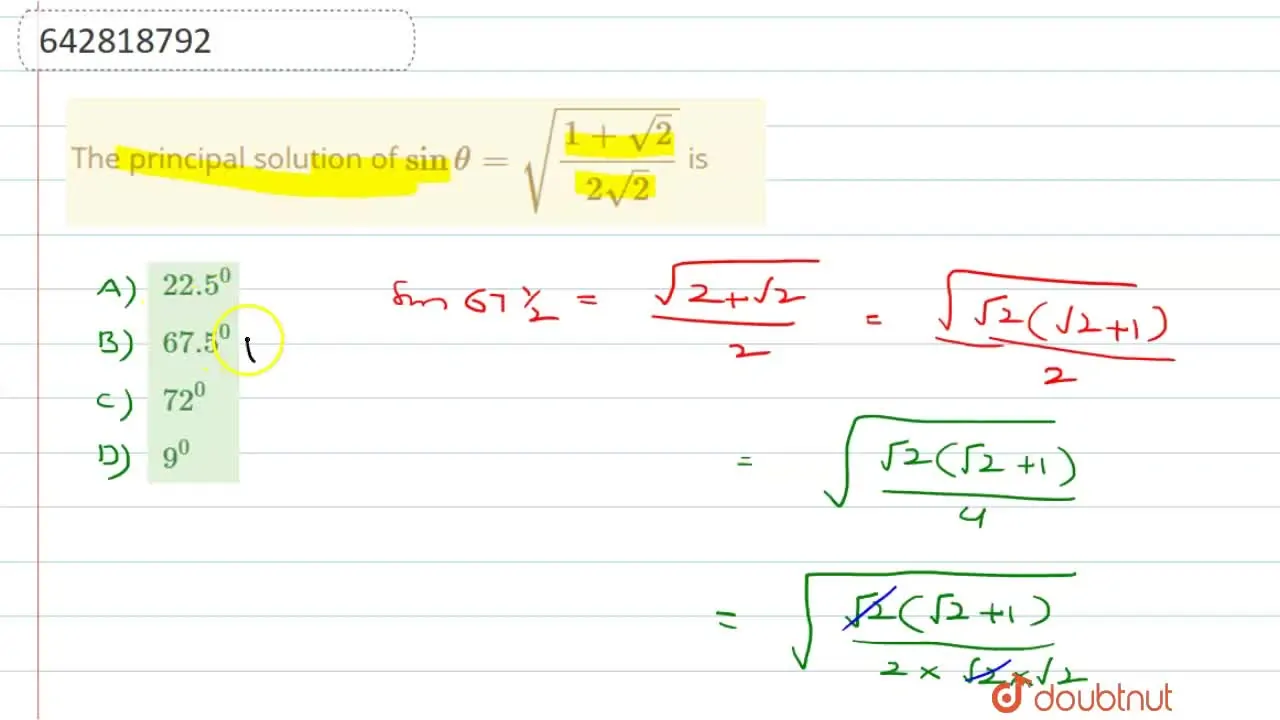 642818792
The principal solution of sin θ = √((1 + √2)/(2√2)) is
A) 22.5⁰
B) 67.5⁰
C) 72⁰
D) 9⁰
Sin 67 ½ = √(2+√2)/2 = √(√2(√2+1))/2
= √(√2(√2+1)/4)
= √(√2(√2+1)/(2×√2×√2))
doubtnut